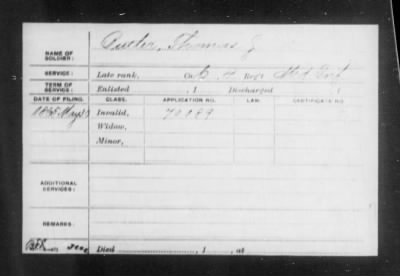 NAME OF SOLDIER: Thomas J
SERVICE: Late rank, Co. G, 4 Reg't Md. Inf
TERM OF SERVICE: Enlisted , 1 Discharged , 1
DATE OF FILING. CLASS. APPLICATION NO. LAW. CERTIFICATE NO.
May Invalid,
Widow,
Minor,
ADDITIONAL SERVICES:
REMARKS:
Died , 1 , at